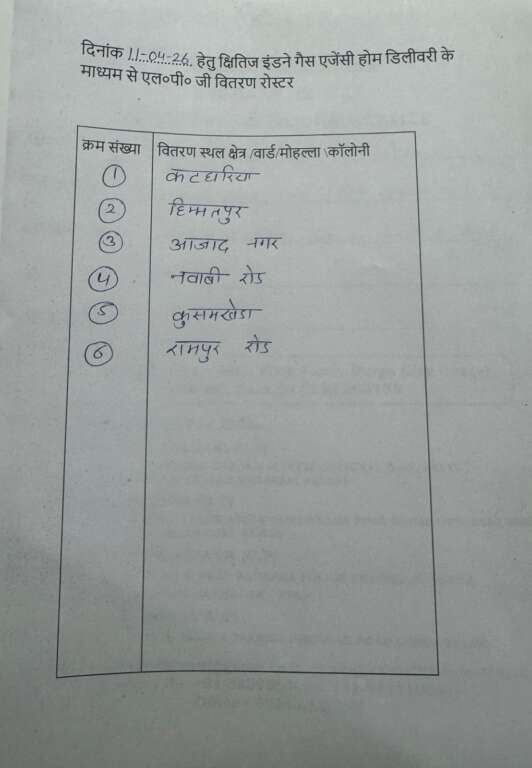 दिनांक 11-04-26. हेतु क्षितिज इंडने गैस एजेंसी होम डिलीवरी के
माध्यम से एल०पी० जी वितरण रोस्टर
क्रम संख्या वितरण स्थल क्षेत्र /वार्ड/मोहल्ला \कॉलोनी
1 कटघरिया
2 हिम्मतपुर
3 आजाद नगर
4 नवाबी रोड
5 कुसमखेडा
6 रामपुर रोड